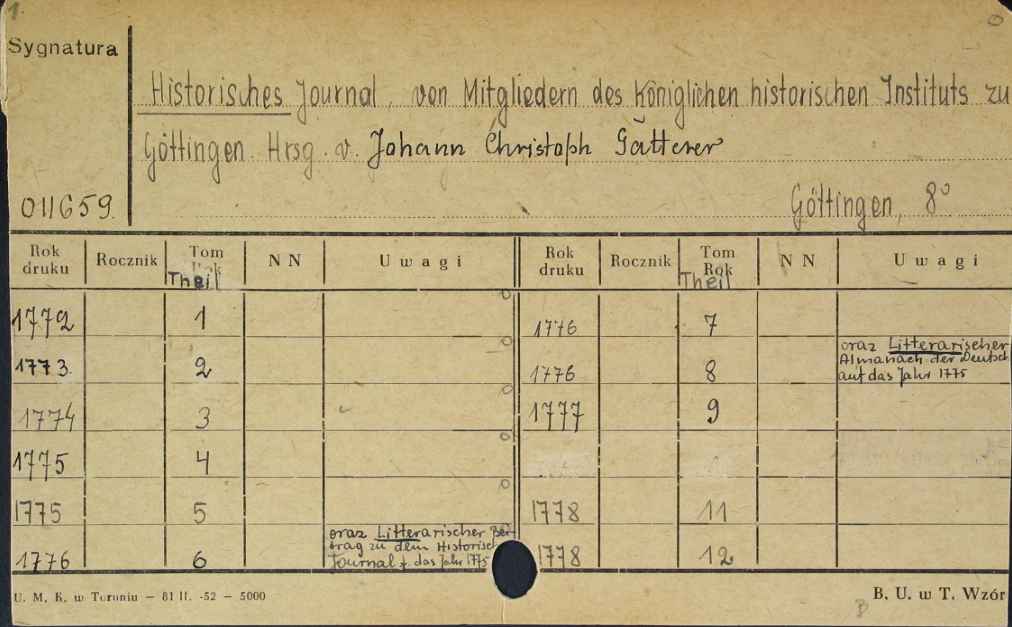 1.
Sygnatura
Historisches Journal, von Mitgliedern des Königlichen historischen Instituts zu
Göttingen. Hrsg. v. Johann Christoph Gatterer
011659.
Göttingen, 8°
Rok druku Rocznik Tom Theil N N Uwagi Rok druku Rocznik Tom Rok Theil N N Uwagi
1772 1 1776 7
1773. 2 1776 8 oraz Litterarischer
Almanach der Deutsch
auf das Jahr 1775
1774 3 1777 9
1775 4
1775 5 1778 11
1776 6 oraz Litterarischer Bei
trag zu dem Historisc
Journal f. das Jahr 1775
1778 12
U. M. K. w Toruniu – 81 II. -52 – 5000
B. U. w T. Wzór